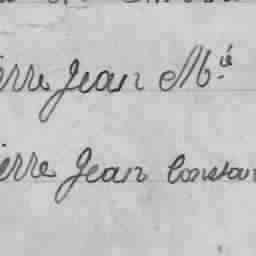 erre Jean Mié
ierre Jean Constan